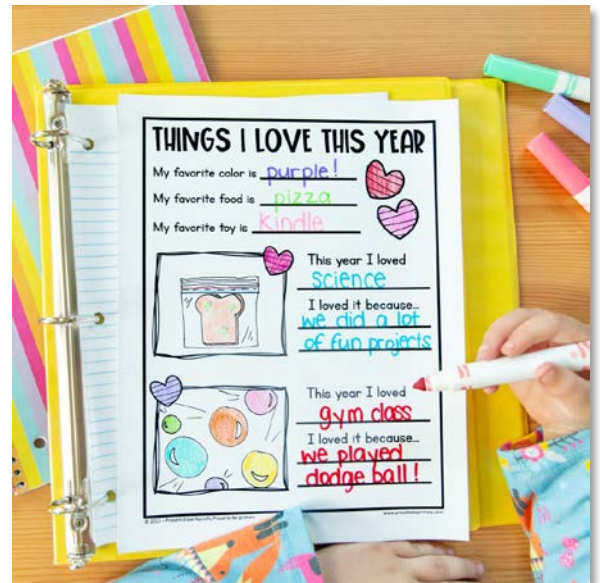 THINGS I LOVE THIS YEAR
My favorite color is purple!
My favorite food is pizza
My favorite toy is Kindle
This year I loved
science
I loved it because...
we did a lot
of fun projects
This year I loved
gym class
I loved it because...
we played
dodge ball!